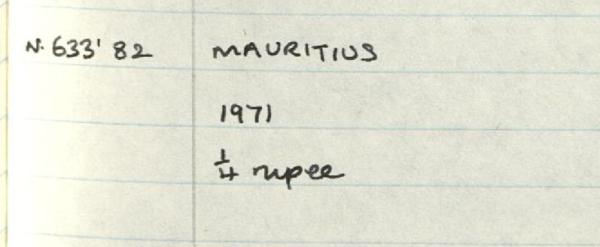 N. 633' 82 MAURITIUS
1971
1/4 rupee